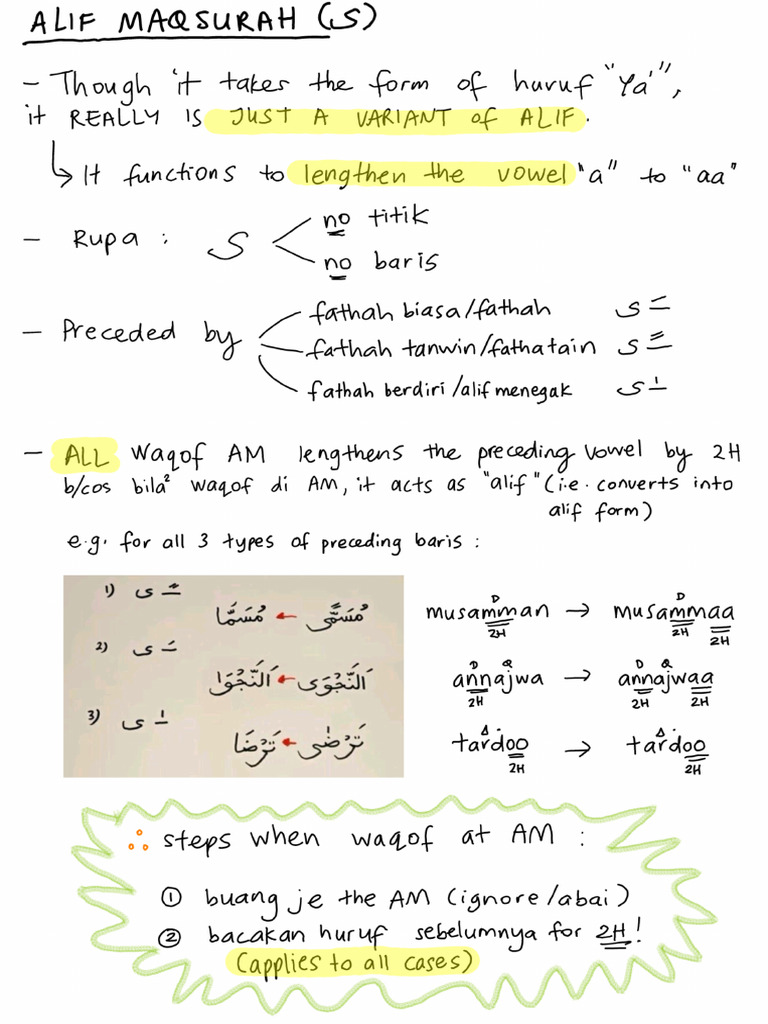 ALIF MAQSURAH (ى)
- Though it takes the form of huruf "Ya'",
it REALLY IS JUST A VARIANT of ALIF.
↳ It functions to lengthen the vowel "a" to "aa"
- Rupa : ى
no titik
no baris
- Preceded by
fathah biasa/fathah ى َ
fathah tanwin/fathatain ى ً
fathah berdiri/alif menegak ى ٰ
- ALL Waqof AM lengthens the preceding vowel by 2H
b/cos bila² waqof di AM, it acts as "alif" (i.e. converts into
alif form)
e.g. for all 3 types of preceding baris :
1) ى ً
مُسَمًّى ← مُسَمَّا
musamman → musammaa
D D
2H 2H 2H
2) ى َ
اَلنَّجْوَى ← اَلنَّجْوَا
annajwa → annajwaa
D Q D Q
2H 2H 2H
3) ى ٰ
تَرْضٰى ← تَرْضَا
tardoo → tardoo
2H 2H
∴ steps when waqof at AM :
① buang je the AM (ignore/abai)
② bacakan huruf sebelumnya for 2H!
(applies to all cases)